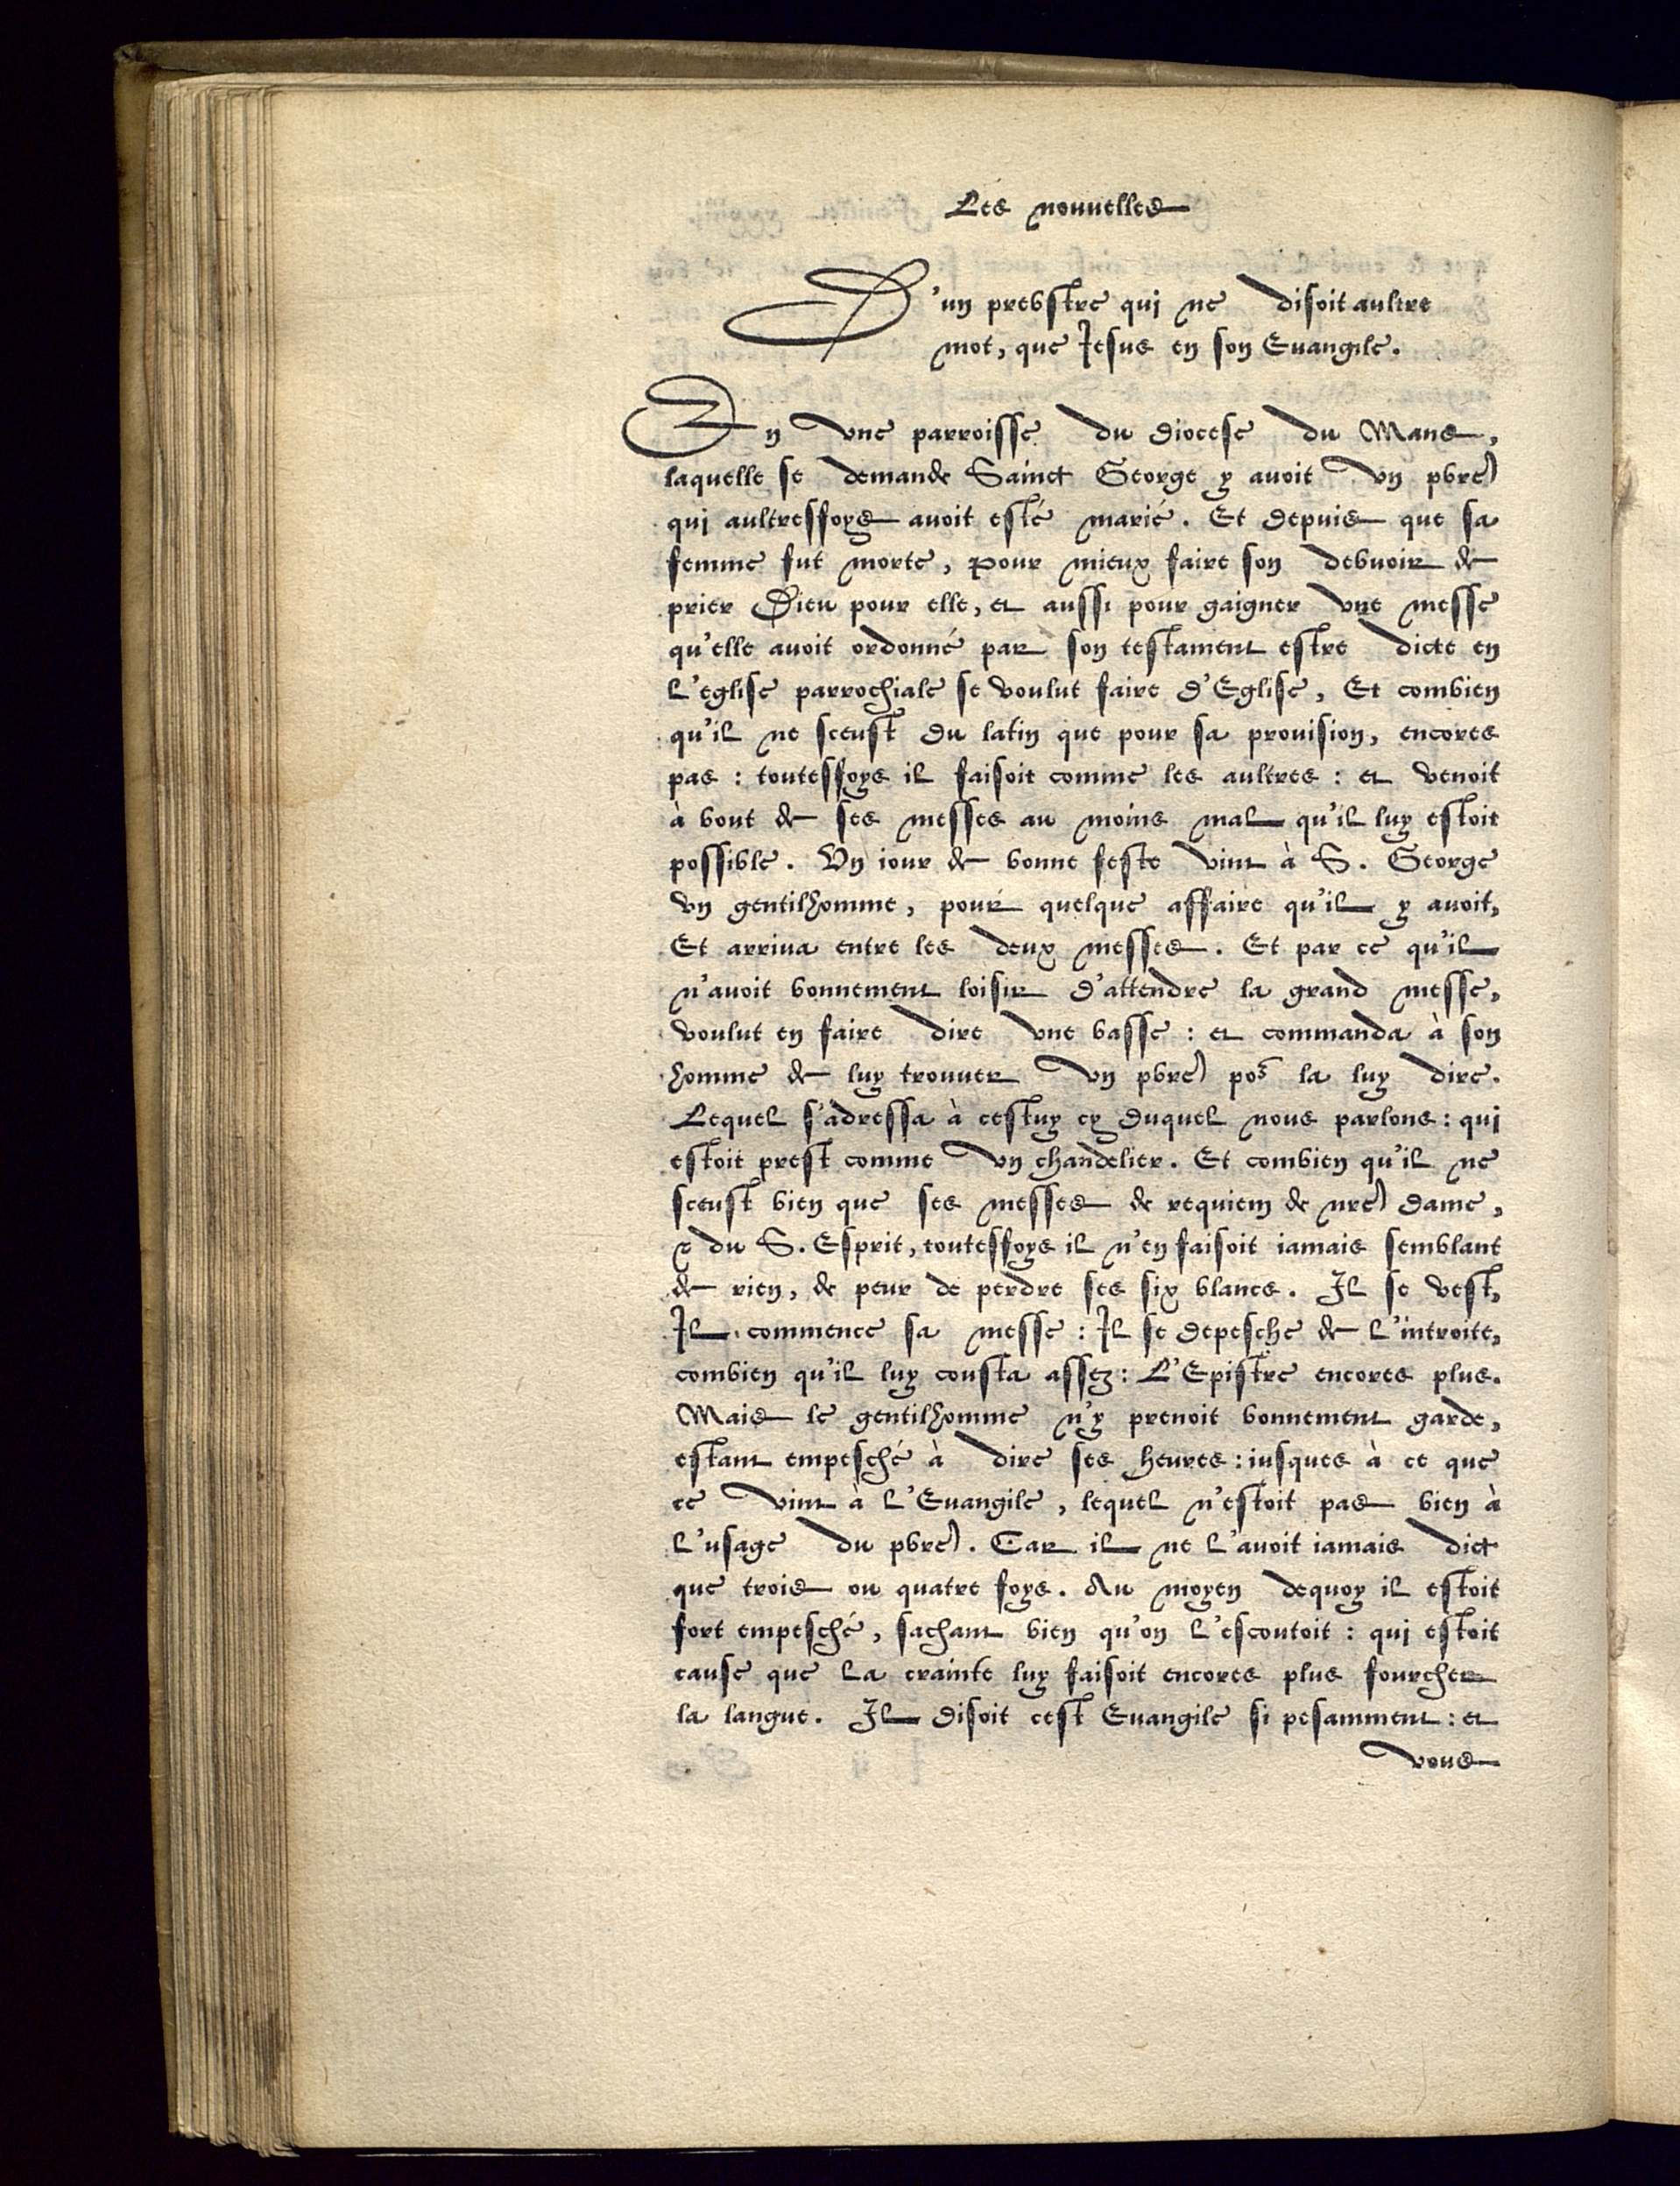 Les nouuelles
D'un prebstre qui ne disoit aultre
mot, que Jesus en son Euangile.
En vne parroisse du diocese du Mans,
laquelle se demande Sainct George y auoit vn pbre)
qui aultresfoys auoit esté marié. Et depuis que sa
femme fut morte, pour mieux faire son debuoir de
prier Dieu pour elle, et aussi pour gaigner vne messe
qu'elle auoit ordonné par son testament estre dicte en
l'eglise parrochiale se voulut faire d'Eglise, Et combien
qu'il ne sceust du latin que pour sa prouision, encores
pas : toutesfoys il faisoit comme les aultres : et venoit
à bout de ses messes au moins mal qu'il luy estoit
possible. Vn iour de bonne feste vint à S. George
vn gentilhomme, pour quelque affaire qu'il y auoit,
Et arriua entre les deux messes. Et par ce qu'il
n'auoit bonnement loisir d'attendre la grand messe,
voulut en faire dire vne basse : et commanda à son
homme de luy trouuer vn pbre) por la luy dire.
Lequel s'adressa à cestuy cy duquel nous parlons : qui
estoit prest comme vn chandelier. Et combien qu'il ne
sceust bien que ses messes de requiem de nre) dame,
& du S. Esprit, toutesfoys il n'en faisoit iamais semblant
de rien, de peur de perdre ses six blancs. Il se vest,
Il commence sa messe : Il se depesche de l'introite,
combien qu'il luy cousta assez : L'Epistre encores plus.
Mais le gentilhomme n'y prenoit bonnement garde,
estant empesché à dire ses heures : iusques à ce que
ce vint à l'Euangile, lequel n'estoit pas bien à
l'usage du pbre). Car il ne l'auoit iamais dict
que trois ou quatre foys. Au moyen dequoy il estoit
fort empesché, sachant bien qu'on l'escoutoit : qui estoit
cause que la crainte luy faisoit encores plus fourcher
la langue. Il disoit cest Euangile si pesamment : et
vous